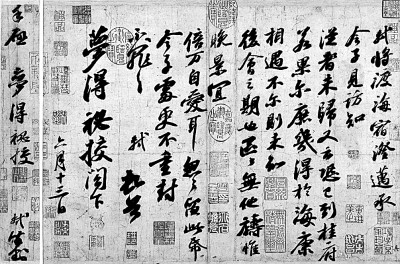 軾將渡海宿澄邁承
令子見訪知
從者未歸又云恐已到桂府
若果爾庶幾得於海康
相遇不爾則未知
後會之期也區區無他禱惟
晚景宜
倍万自愛耳忽忽留此帋
令子處更不重封
不罪不罪 軾頓首
夢得秘校閣下
六月十三日
手啟 夢得秘校 軾封